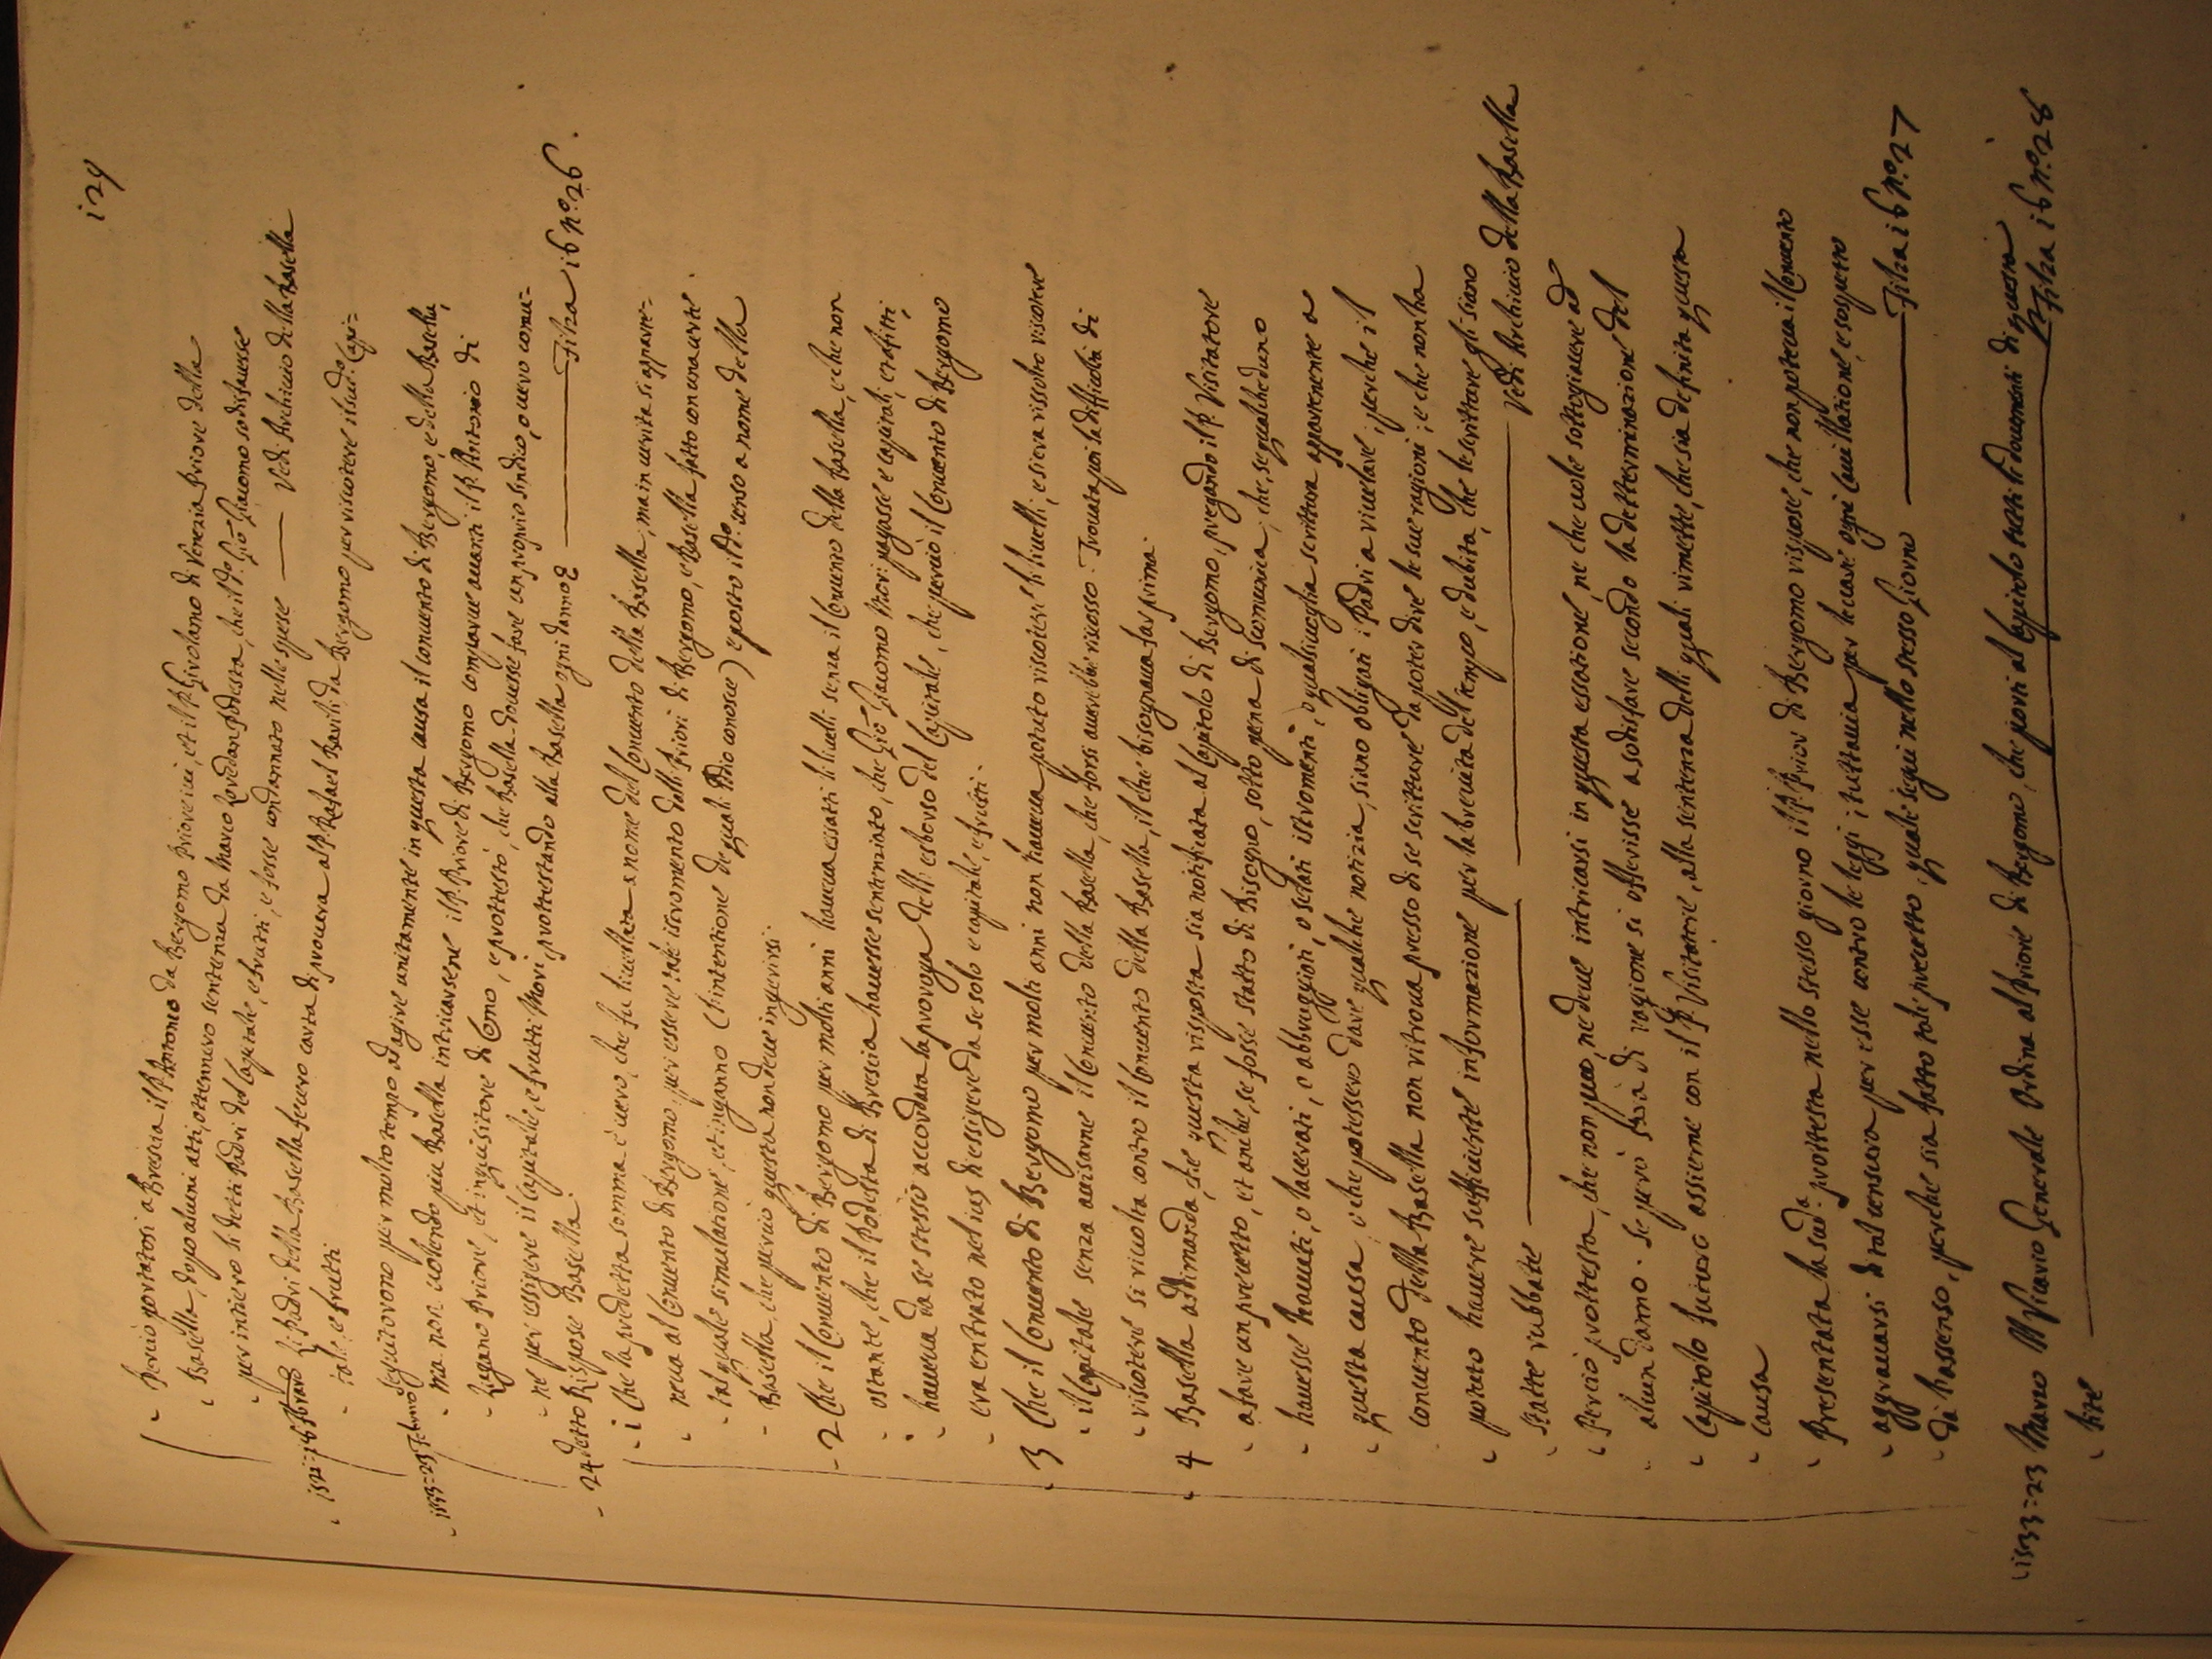 129
Perciò portatosi a Brescia il P. Antonio da Bergomo Priore ivi, et il P. Girolamo di Venezia Priore della
Basella, dopo alcuni atti, ottennero sentenza da Marco Podestà, che il do. Gio: Giacomo sodisfacesse
per intiero li detti Padri del Capitale, e frutti, e fosse condannato nelle spese — Vedi Archivio della Basella
li Padri della Basella fecero carta di procura al P. Rafael da Bergomo per riscotere il sud.o Capi=
tale, e frutti
1533=23 seguitorono per molto tempo ad agire unitamente in questa causa il Convento di Bergomo, e della Basella,
ma non volendo più Basella intricarsene il P. Priore di Bergomo comparve avanti il P. Antonio di
Lugano Priore, et inquisitore di Como, e protestò, che Basella dovesse fare un proprio sindico, o vero comu=
ne per essigere il Capitale, e frutti Mori, protestando alla Basella ogni danno — Filza 16 n.o 26.
24 detto Rispose Basella.
1 Che la predetta somma è vero, che fu livellata a nome del Convento della Basella, ma in verità si aparte=
neva al Convento di Bergomo, per essere tale istromento dalli Priori di Bergomo, e Basella fatto con una certe
tal quale simulatione, et inganno (l'intentione de quali Iddio conosce) e posto il do. censo a nome della
Basella, che perciò questa non deve ingerirsi.
2 Che il Convento di Bergomo per molti anni haveva essatti li livelli senza il Convento della Basella, e che non
ostante, che il Podestà di Brescia havesse sentenziato, che Gio: Giacomo Mori pagasse e capitali, e affitti,
haveva da se stesso accordata la proroga dell'esborso del Capitale, che perciò il Convento di Bergomo
era entrato nel ius di essigere da se solo e capitale, e frutti.
3 Che il Convento di Bergomo per molti anni non haveva potuto riscotere li livelli, e si era rissolto riscotere
il Capitale senza avisarne il Convento della Basella, che forsi averebbe riscosso. Trovata poi la difficoltà di
riscotere si rivolta contro il Convento della Basella, il che bisognava far prima.
4 Basella addimanda, che questa risposta sia notificata al Capitolo di Bergomo, pregando il P. Visitatore
a fare un precetto, et anche, se fosse statto di bisogno, sotto pena di scomunica, che, se qualcheduno
havesse havuti, o lacerati, o abbruggiati, o celati istromenti, o qualsivoglia scrittura appartenente a
questa causa, o che potessero dare qualche notizia, siano obligati i Padri a rivelare, perche il
Convento della Basella non ritrova presso di se scritture da poter dire le sue ragioni, e che non ha
potuto havere sufficiente informazione per la brevità del tempo, e dubita, che le scritture gli siano
statte rubbate — Vedi Archivio della Basella
Perciò protesta, che non può, ne deve intricarsi in questa essatione, ne che vole sottogiacere ad
alcun danno. Se però sarà di ragione si offerisse a sodisfare secondo la determinazione del
Capitolo futuro assieme con il P. Visitatore, alla sentenza delli quali rimette, che sia definita questa
causa
Presentata la sud.a protesta nello stesso giorno il P. Prior di Bergomo rispose, che non poteva il Convento
aggravarsi di tal censura per esse contro le leggi, tuttavia per levare ogni cavillazione, e sospetto
dà l'assenso, perche sia fatto tal precetto, quale seguì nello stesso giorno — Filza 16 n.o 27
1533=23 Marzo Il Vicario Generale ordina al Priore di Bergomo, che porti al Capitolo tutti li documenti di questa
lite — Filza 16 n.o 28